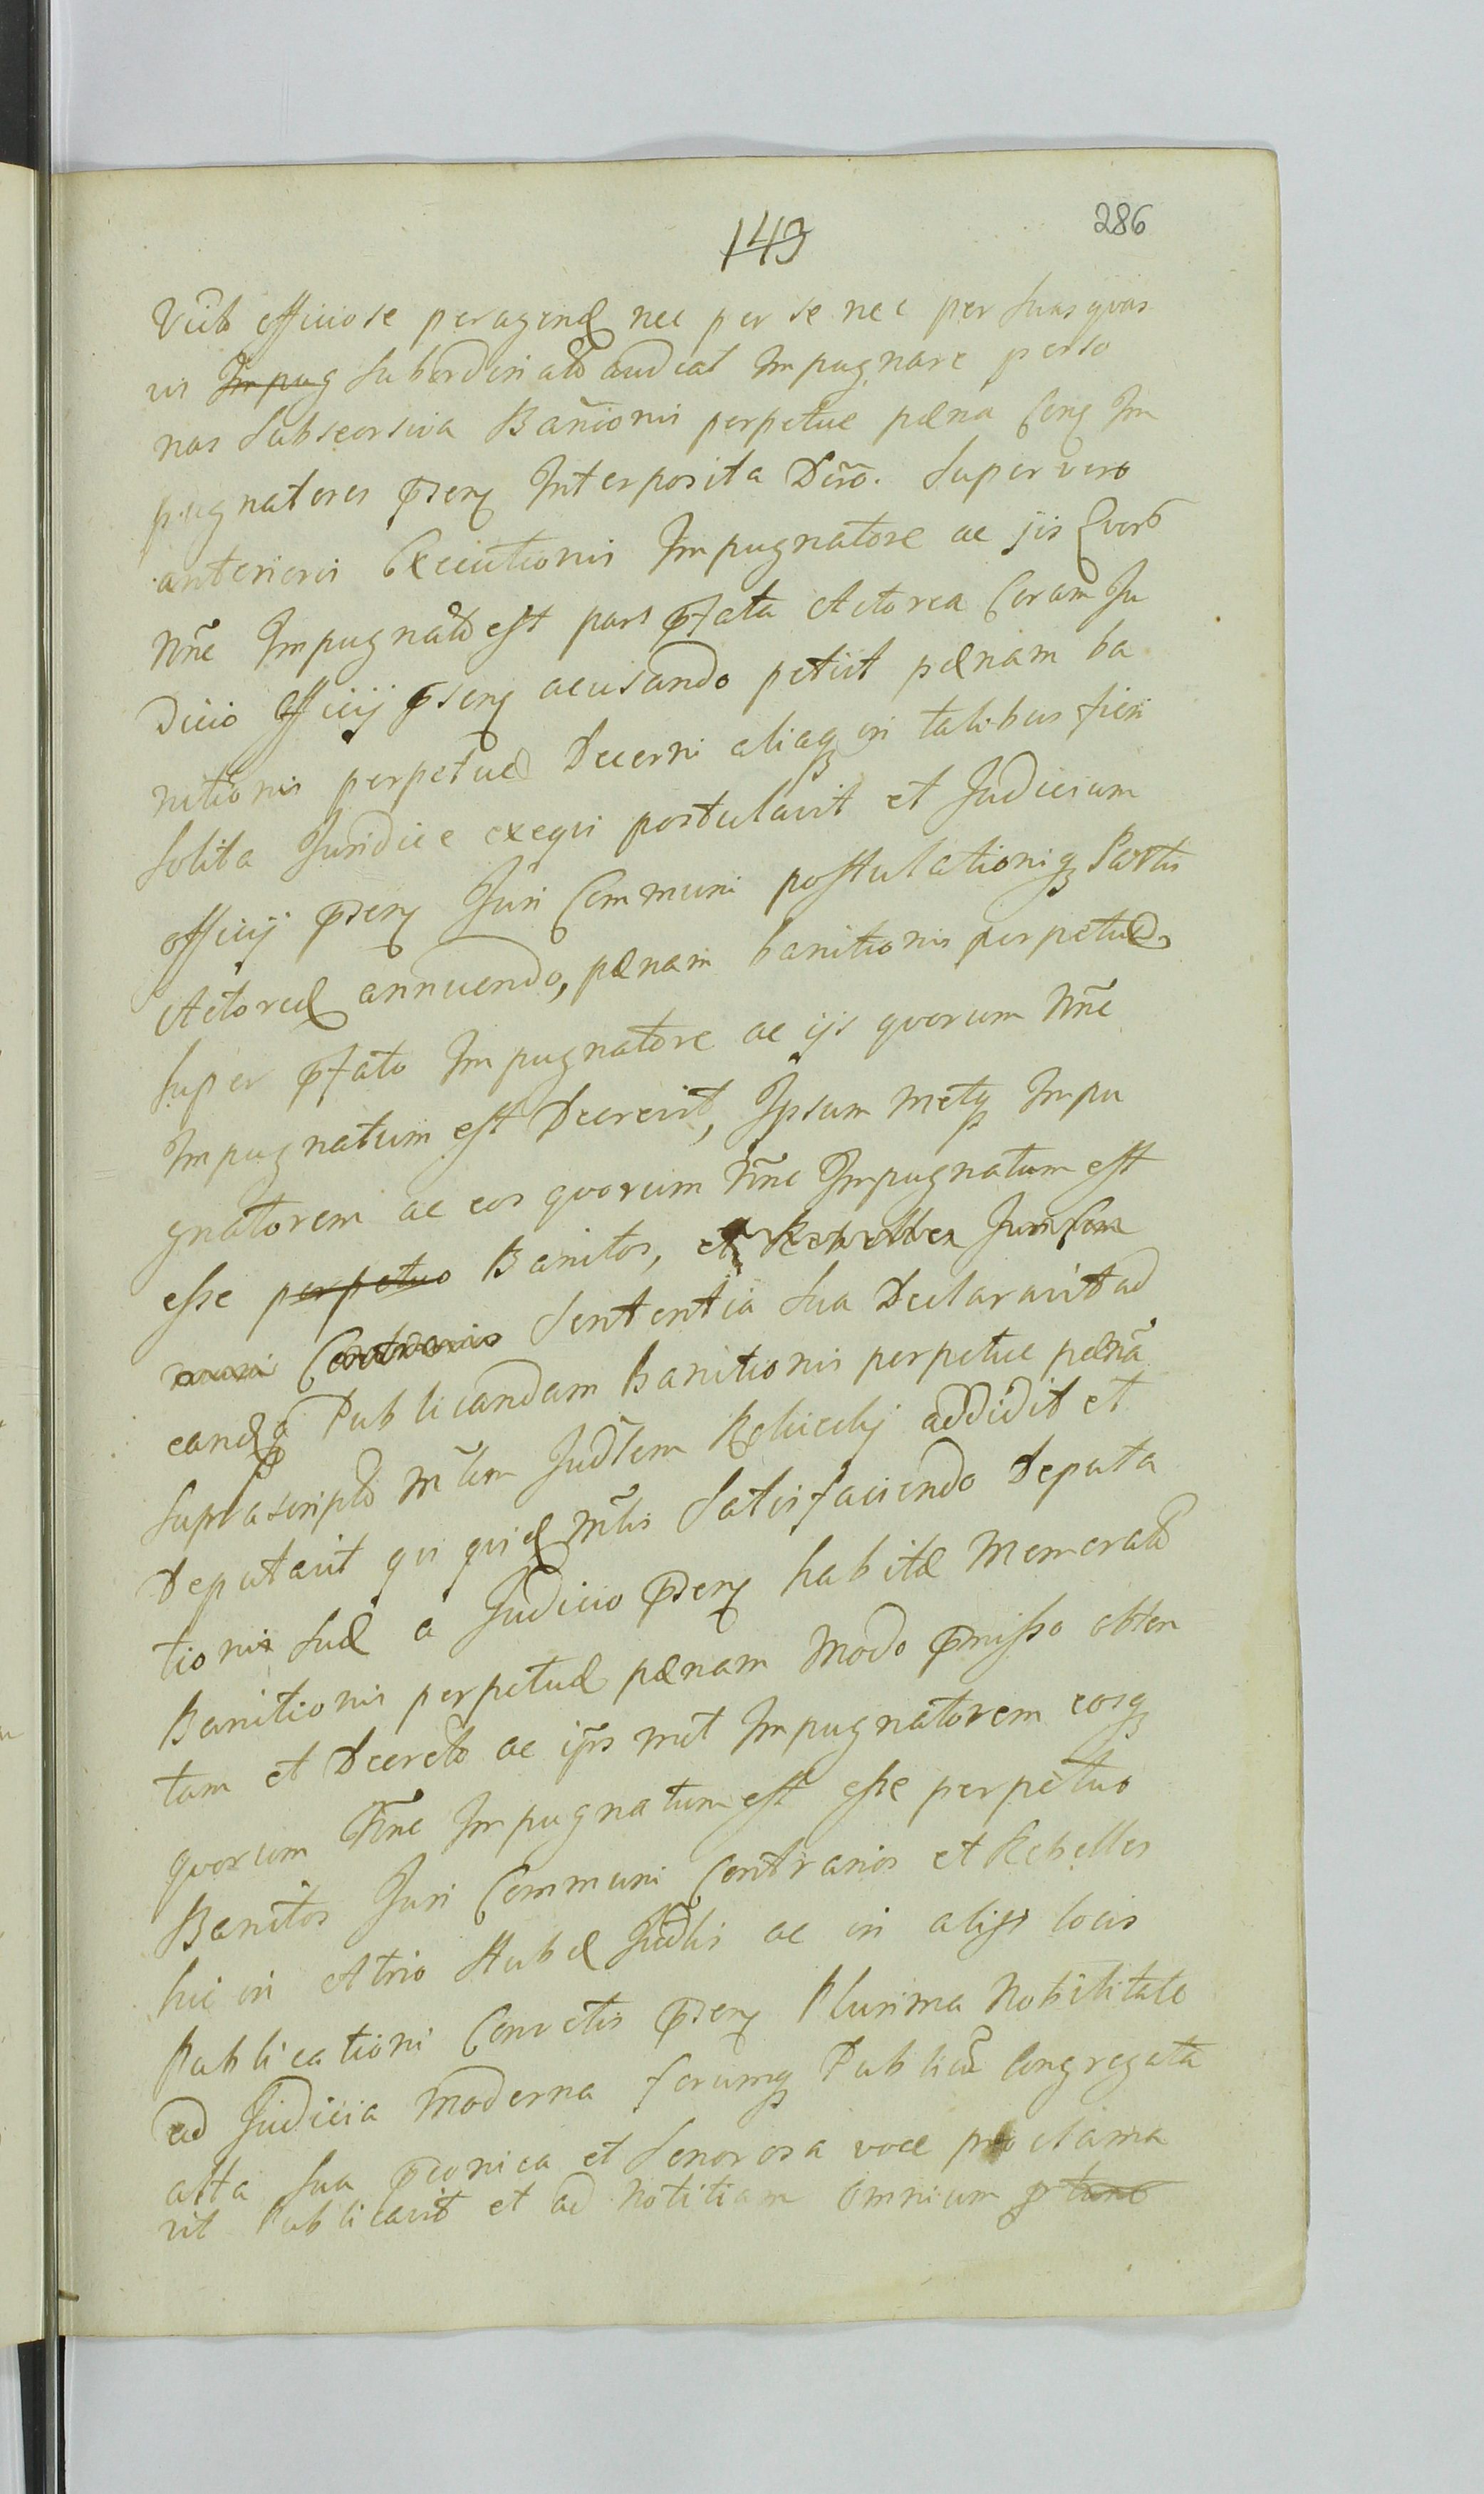 286
149
officiose peragend nec per se nec per suas quas
vis Impug subordinatas audeat Impugnare perso
nas sub seorsiva Banionis perpetue pæna Cong Im
pugnatores pseny Interposita Dcro. Super vero
anterioris Executionis Impugnatore ac ijs Quorum
Nne Impugnatu est pars pfata Actorea Coram Ju
dicio Officij pseny acusando petiit pænam ba
nitionis perpetuæ Decerni aliaq in talibus fieri
solita Juridice exequi postulavit et Judicium
officij pseny Juri Communi postulationiq Partis
Actoreæ annuendo, pænam banitionis perpetuæ
super pfato Impugnatore ac ijs quorum Nne
Impugnatum est Decrevit, Ipsum metq Impu
gnatorem ac eos quorum Nne Impugnatum est
esse perpetuo Banitos, et Rebelles Juri Com
muni Contrarios Sententia sua Declaravit ad
eandq Publicandam Banitionis perpetue pænã
suprascriptu Mlem Judlem addidit et
Deputavit qui quid Mlis satisfaciendo Deputa
tionis suæ a Judicio pseny habitæ Memoratã
Banitionis perpetuæ pænam Modo pmisso obten
tam et Decretã ac ips met Impugnatorem eosq
quorum Nne Impugnatum est esse perpetuo
Banitos Juri Communi Contrarios et Rebelles
hic in Atrio Stubæ Judlis ac in alijs locis
Publicationi Consvetis pseny Plurima Nobilitate
ad Judicia moderna forumq Publicũ Congregata
alta sua pconica et Sonorosa voce proclama
vit Publicavit et ad Notitiam omnium